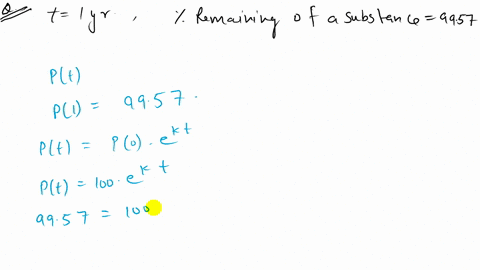 Q t = 1 yr. , % Remaining of a substance = 99.57
P(t)
P(1) = 99.57.
P(t) = P(0) · e^{kt}
P(t) = 100 · e^{kt}
99.57 = 100